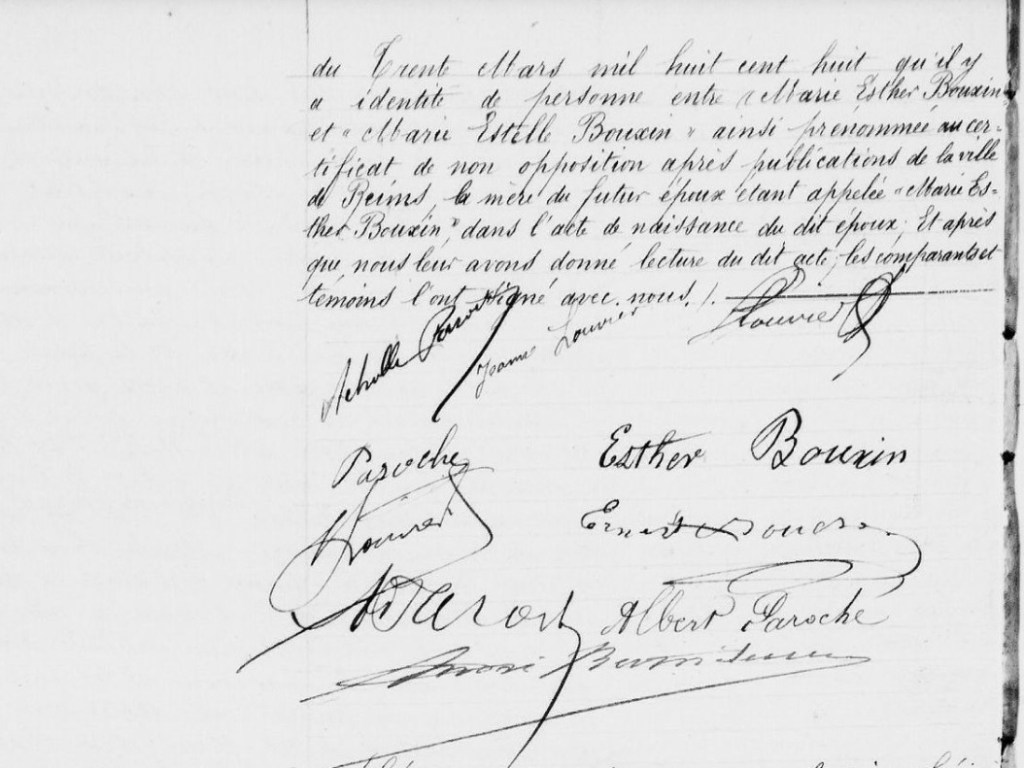 du Trente Mars mil huit cent huit qu'il y
a identité de personne entre "Marie Esther Bouxin
et "Marie Estelle Bouxin" ainsi prénommée au cer-
tificat de non opposition après publications de la ville
de Reims, la mère du futur époux étant appelée "Marie Es-
ther Bouxin", dans l'acte de naissance du dit époux; Et après
que nous leur avons donné lecture du dit acte, les comparants et
témoins l'ont signé avec nous. /.
Achille
Jeanne Louvier
Louvier
Paroche
Esther Bouxin
Louvier
Ernest
Albert Paroche